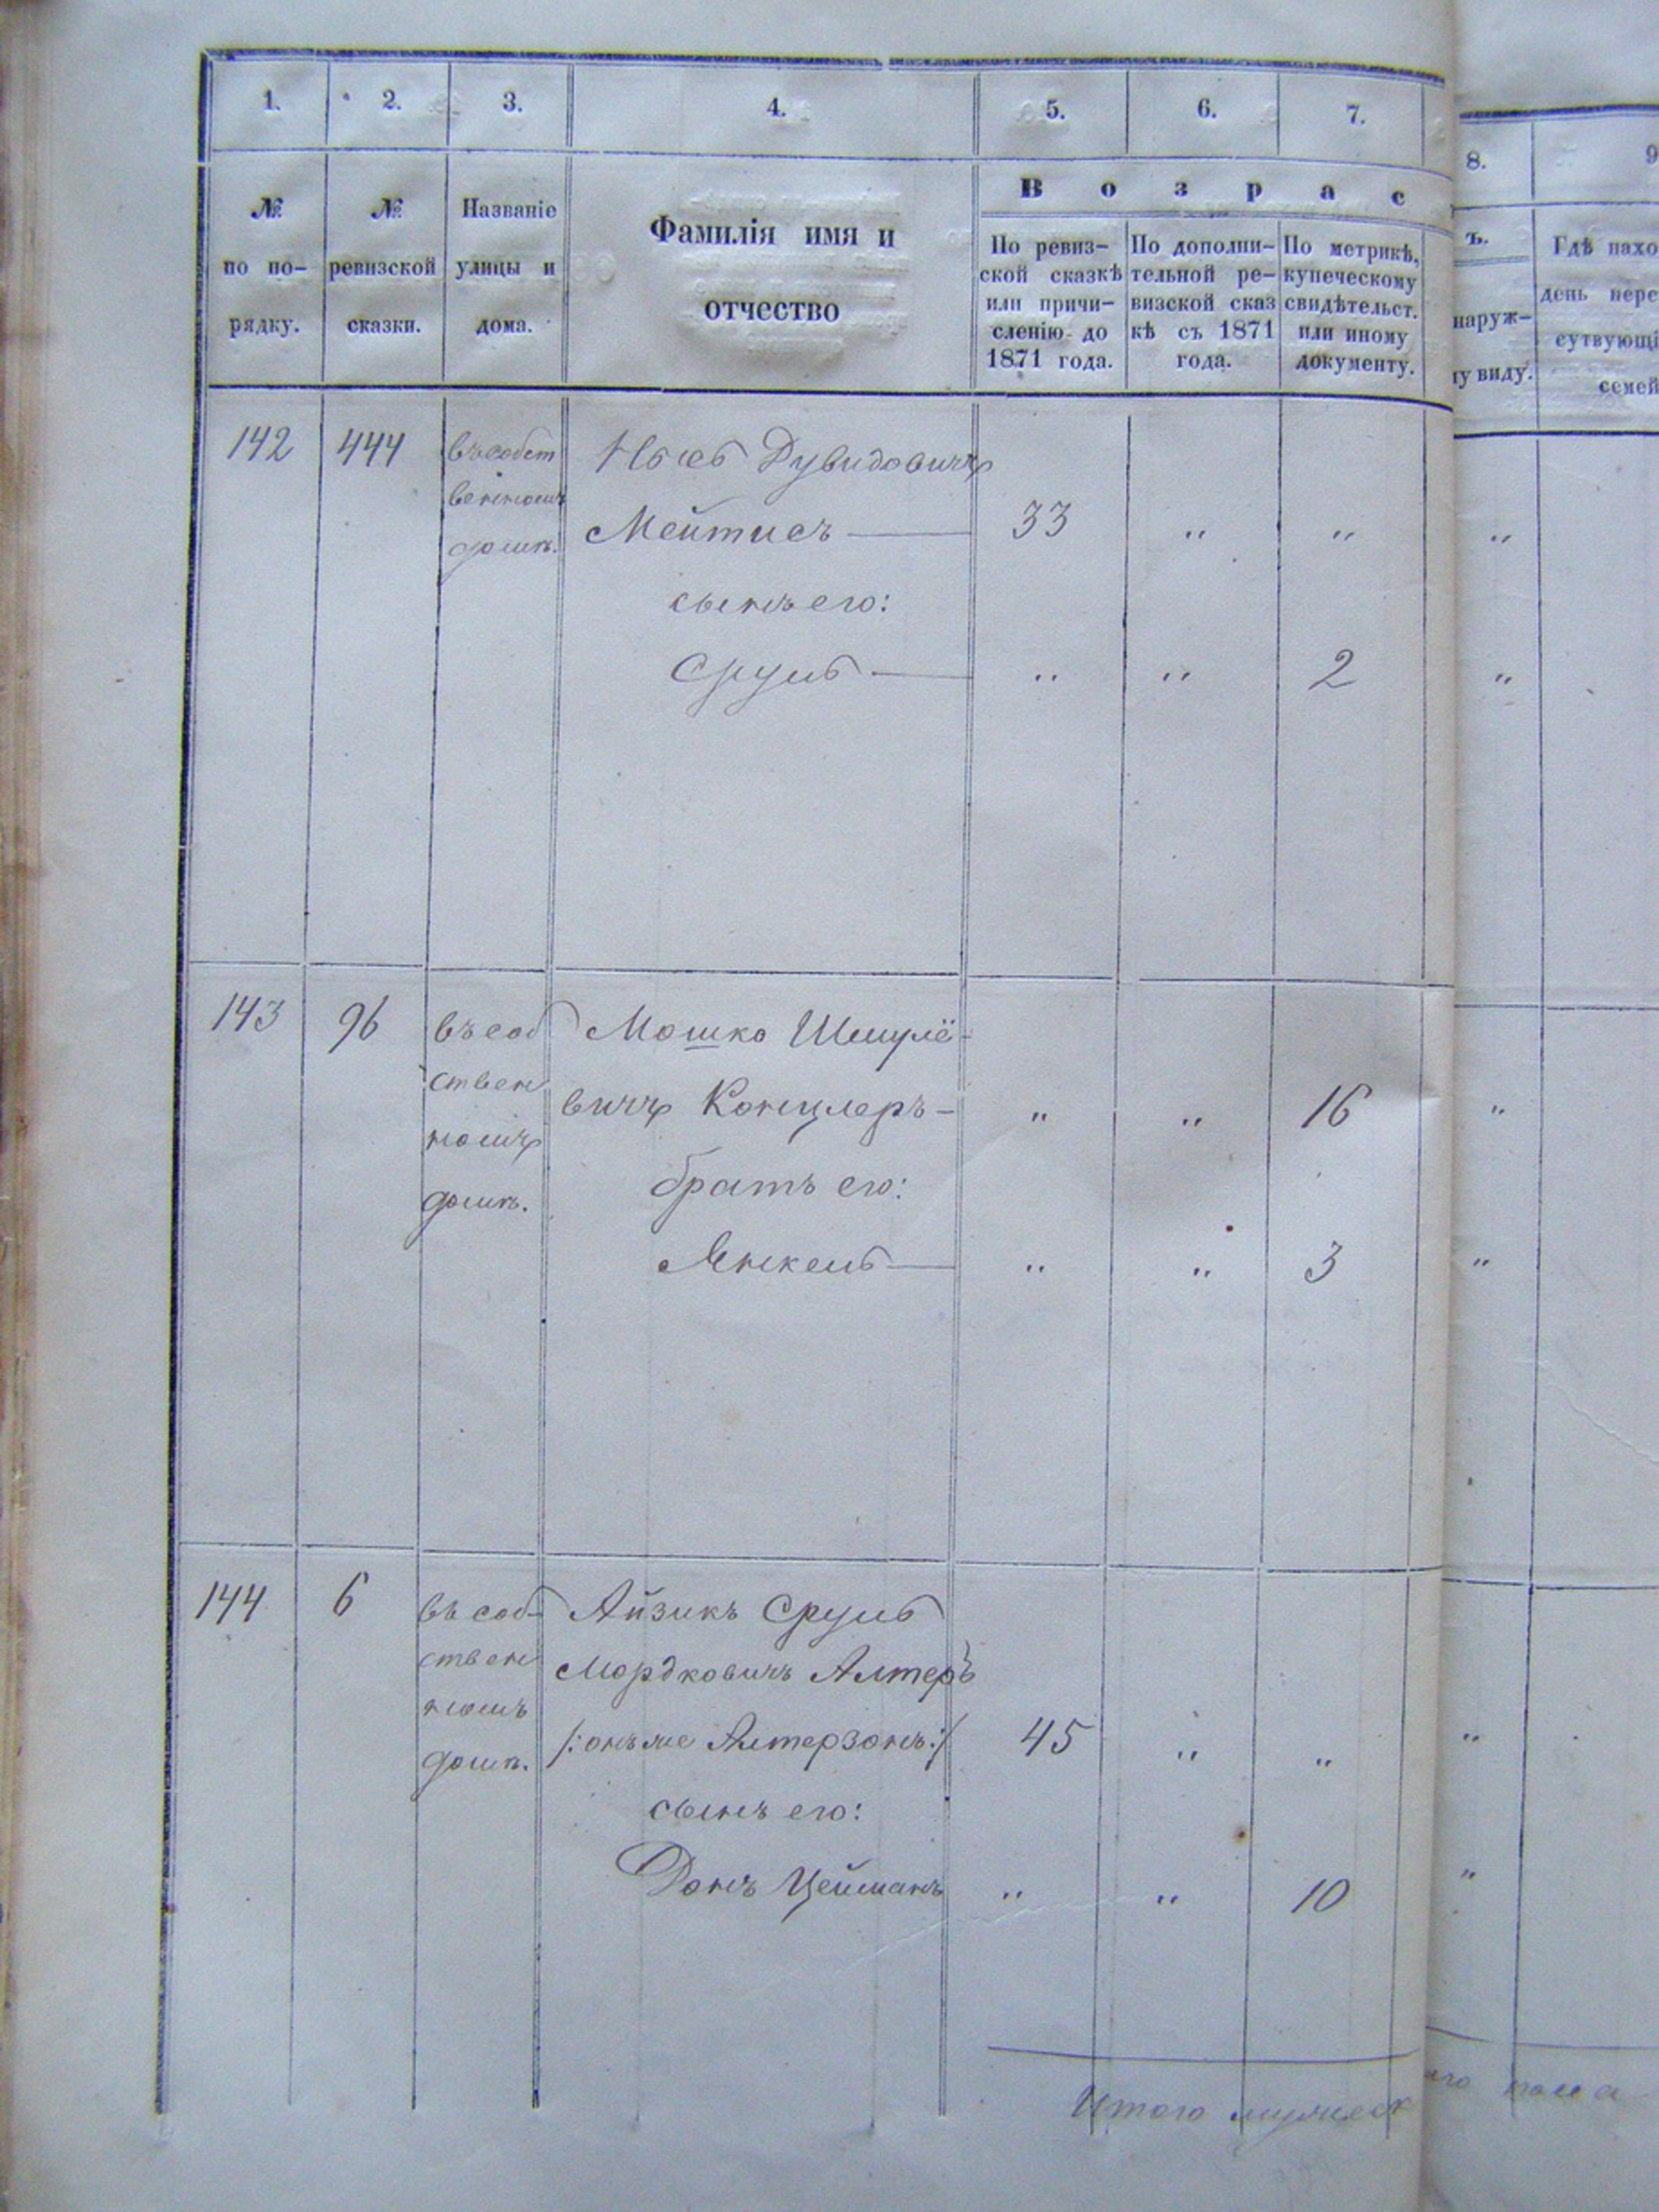 1. 2. 3. 4. 5. 6. 7.
8. 9
В о з р а с
ъ.
№ по по-рядку.
№ ревизской сказки.
Названіе улицы и дома.
Фамилія имя и отчество
По ревиз-
ской сказкѣ
или причи-
сленію до
1871 года.
По дополни-
тельной ре-
визской сказ
кѣ съ 1871
года.
По метрикѣ,
купеческому
свидѣтельст.
или иному
документу.
наруж-
у виду.
Гдѣ нахо
день пере
сутвующі
семей
142 444 въ собст
венномъ
домѣ.
Дувидовичъ
Мейтисъ — 33 " " "
сынъ его:
Сруль — " " 2 "
143 96 въ соб
ствен
номъ
домѣ.
Мошко Шмулё-
вичъ Концлеръ — " " 16 "
братъ его:
Янкель — " " 3 "
144 6 въ соб-
ствен
номъ
домѣ.
Айзикъ Сруль
Мордковичъ Алтеръ
/:онъ же Алтерзонъ:/ 45 " " "
сынъ его:
Донъ Цейманъ " " 10 "
Итого мужеск
аго пола